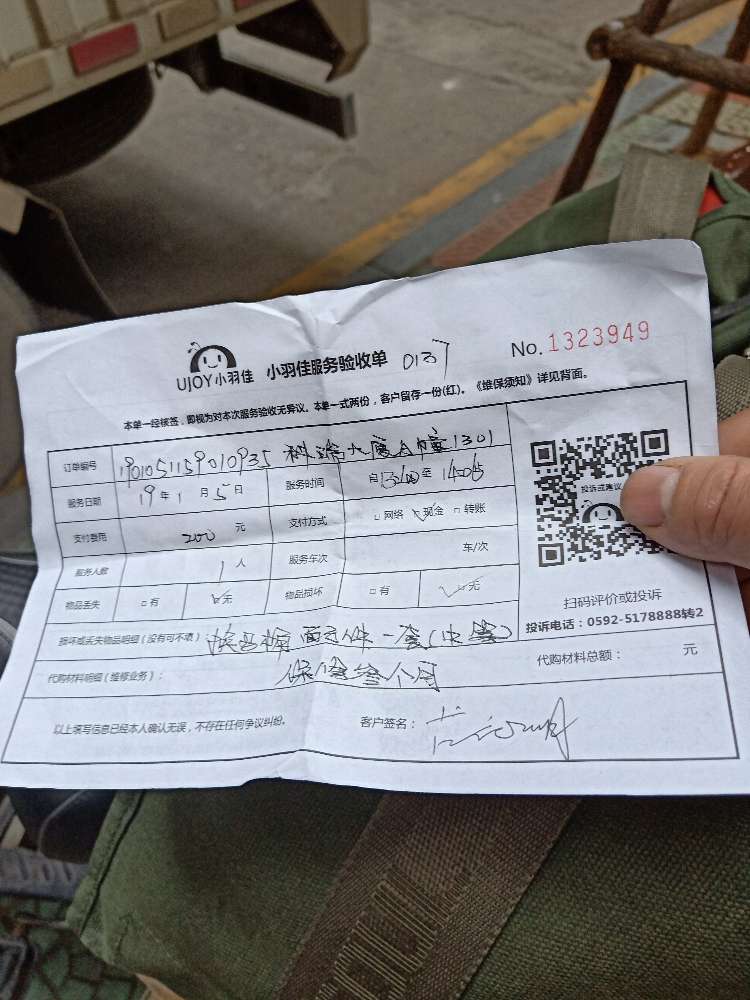 UJOY小羽佳 小羽佳服务验收单 No. 1323949
本单一经核签，即视为对本次服务验收无异议。本单一式两份，客户留存一份(红)。《维保须知》详见背面。
订单编号 1901051159010935
服务日期 19年1月5日 服务时间 自 至
支付费用 200 元 支付方式 □网络 □现金 □转账
服务人数 1人 服务车次 车/次
物品丢失 □有 □无 物品损坏 □有 □无
投诉或建议
扫码评价或投诉
投诉电话：0592-5178888转2
损坏或丢失物品明细（没有可不填）
代购材料明细（维修业务）： 保修叁个月 代购材料总额： 元
以上填写信息已经本人确认无误，不存在任何争议纠纷。 客户签名：